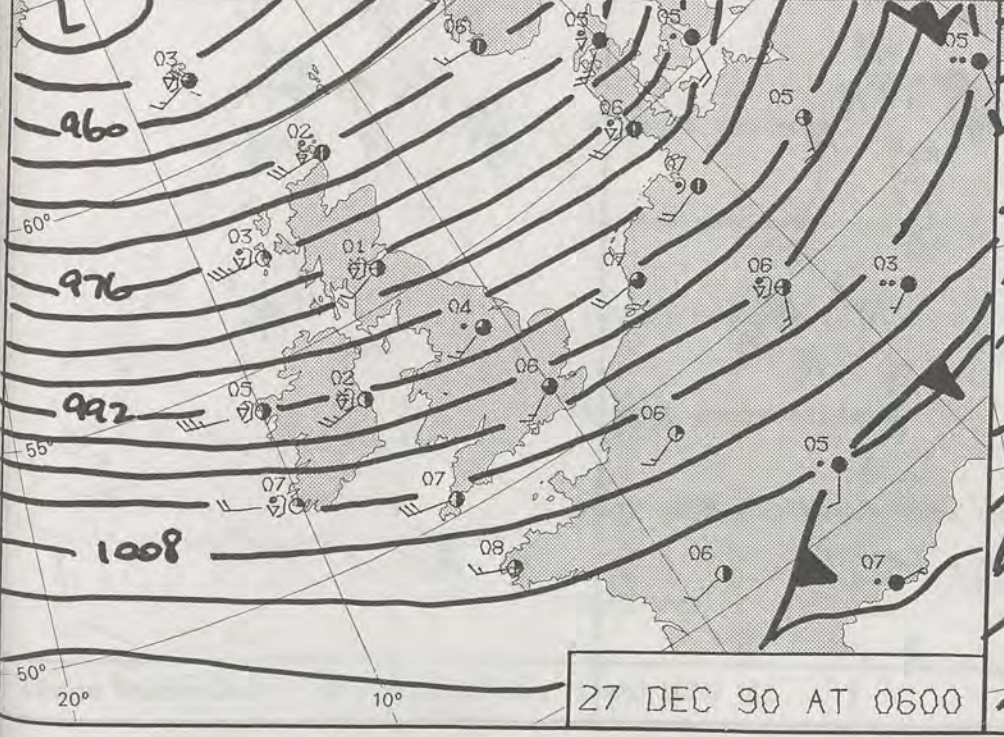 L
06
05
05
05
03
960
02
06
05
07
60°
03
01
976
07
06
03
04
06
05
02
992
06
55°
05
07
07
1008
08
06
07
50°
20°
10°
27 DEC 90 AT 0600